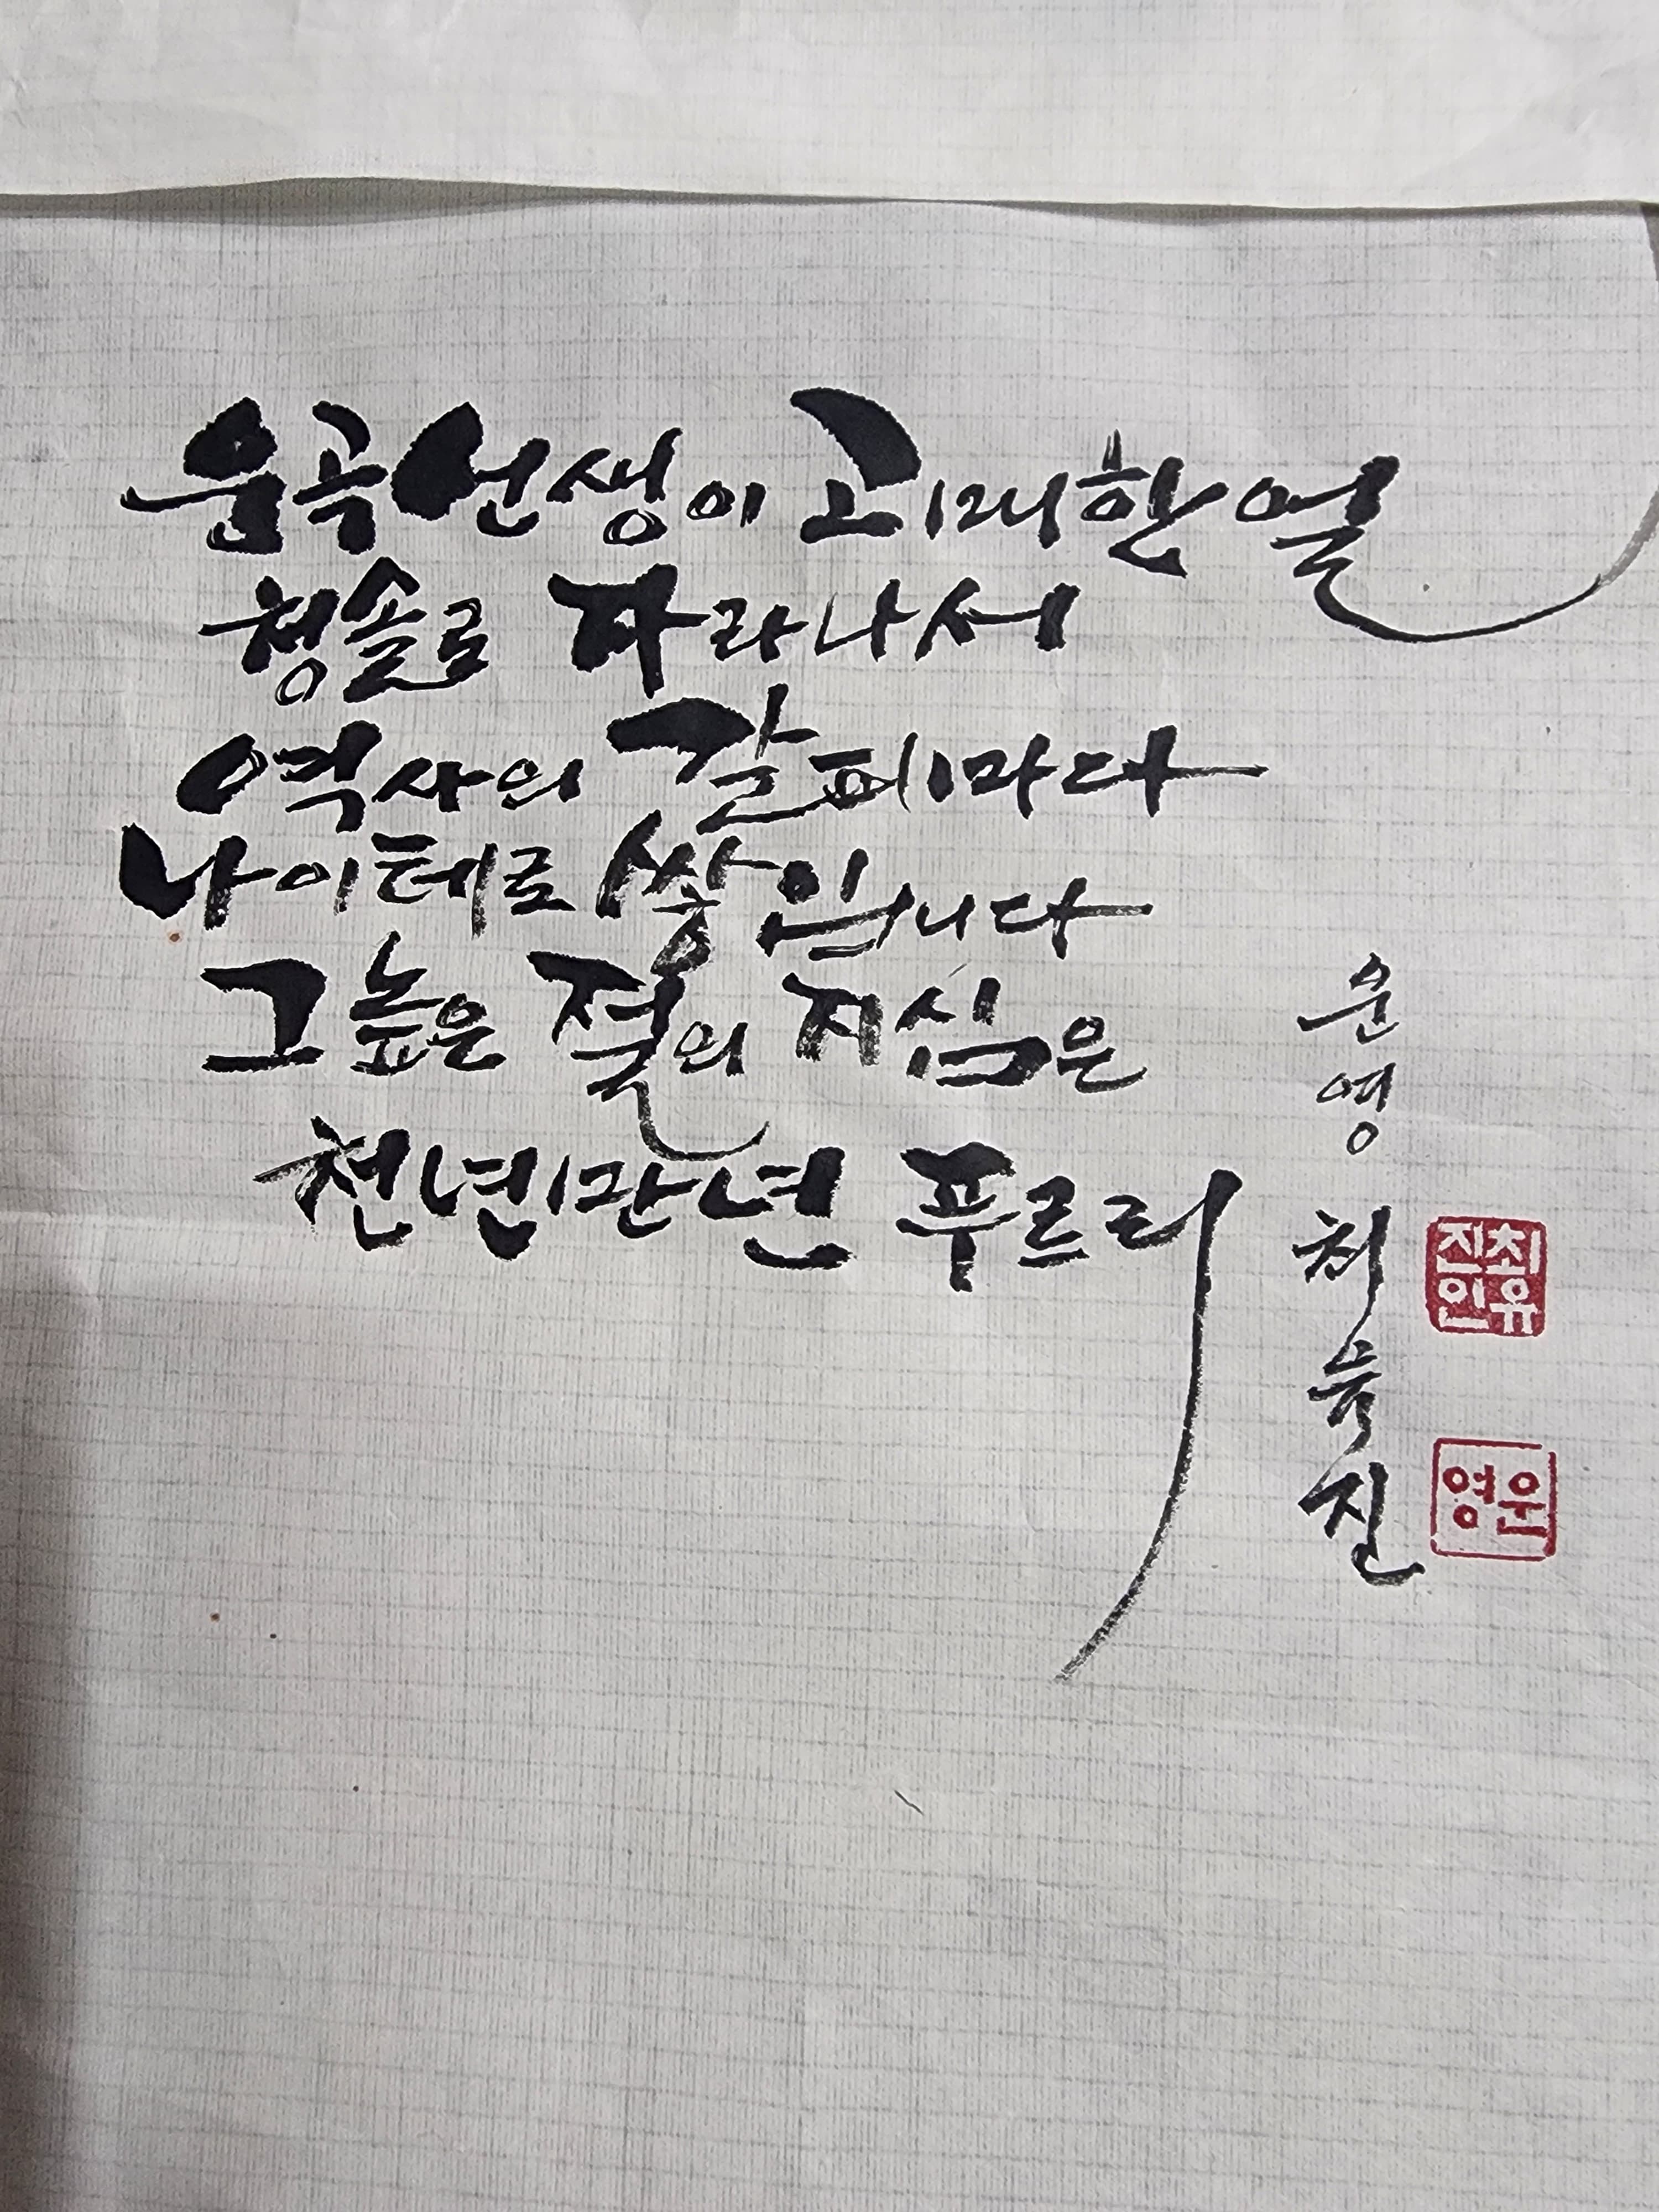 운곡선생이 고매한 얼
청솔로 자라나서
역사의 갈피마다
나이테로 쌓입니다
그 높은 절의 지심은
천년만년 푸르리
운영 최유진
최유진인
운영